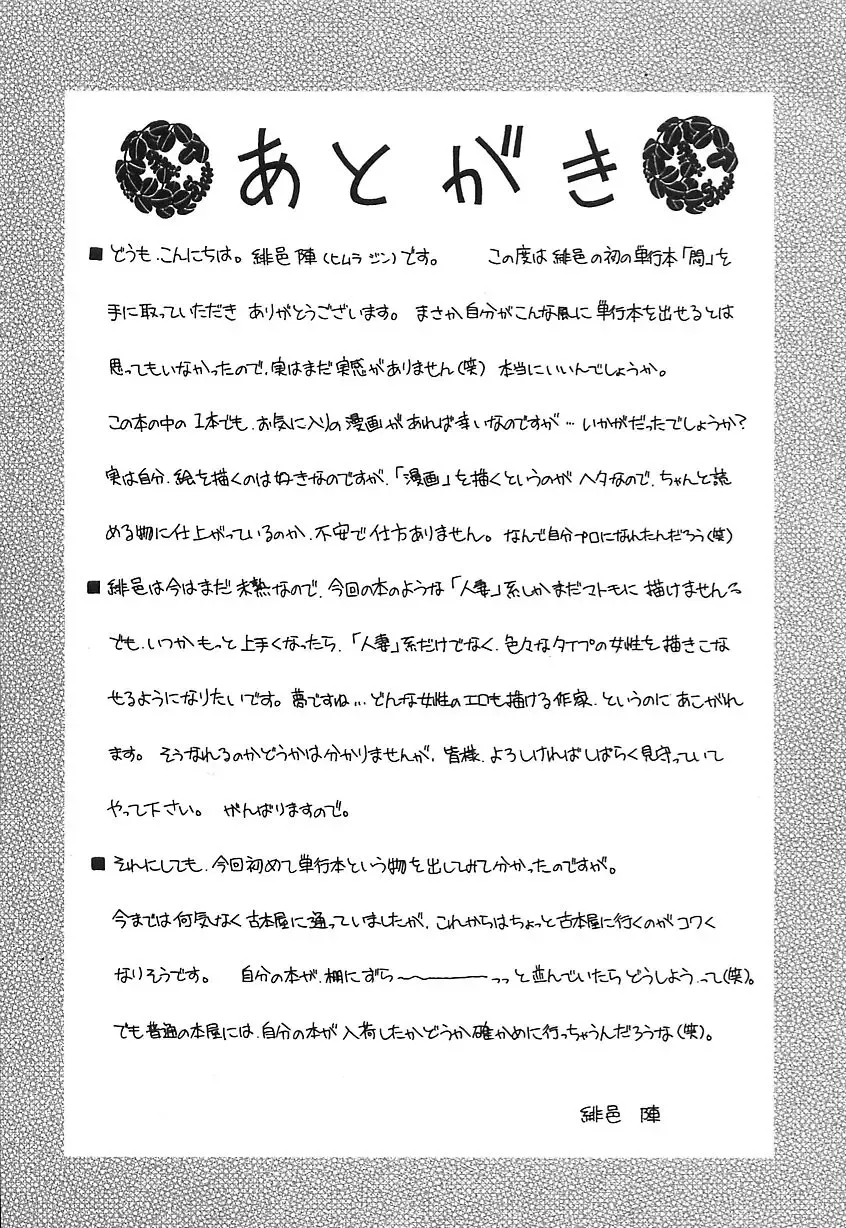 あとがき
■どうも、こんにちは。緋邑 陣(ヒムラ ジン)です。 この度は緋邑の初の単行本「悶」を
手に取っていただき ありがとうございます。まさか自分がこんな風に単行本を出せるとは
思ってもいなかったので、実はまだ実感がありません(笑) 本当にいいんでしょうか。
この本の中の1本でも、お気に入りの漫画があれば幸いなのですが…いかがだったでしょうか?
実は自分、絵を描くのは好きなのですが、「漫画」を描くというのが ヘタなので、ちゃんと読
める物に仕上がっているのか、不安で仕方ありません。なんで自分プロになれたんだろう(笑)
■緋邑は今はまだ 未熟なので、今回の本のような「人妻」系しかまだマトモに 描けませんが
でも、いつか もっと上手くなったら、「人妻」系だけでなく、色々なタイプの女性を描きこな
せるようになりたいです。夢ですね…どんな女性のエロも描ける作家、というのに あこがれ
ます。 そうなれるのかどうかは分かりませんが、皆様、よろしければしばらく見守っていて
やって下さい。 がんばりますので。
■それにしても、今回初めて単行本という物を出してみて分かったのですが。
今までは何気なく古本屋に通っていましたが、これからはちょっと古本屋に行くのがコワく
なりそうです。 自分の本が、棚にずら〜〜───っっと並んでいたらどうしよう、って(笑)。
でも普通の本屋には、自分の本が入荷したかどうか確かめに行っちゃうんだろうな(笑)。
緋邑 陣